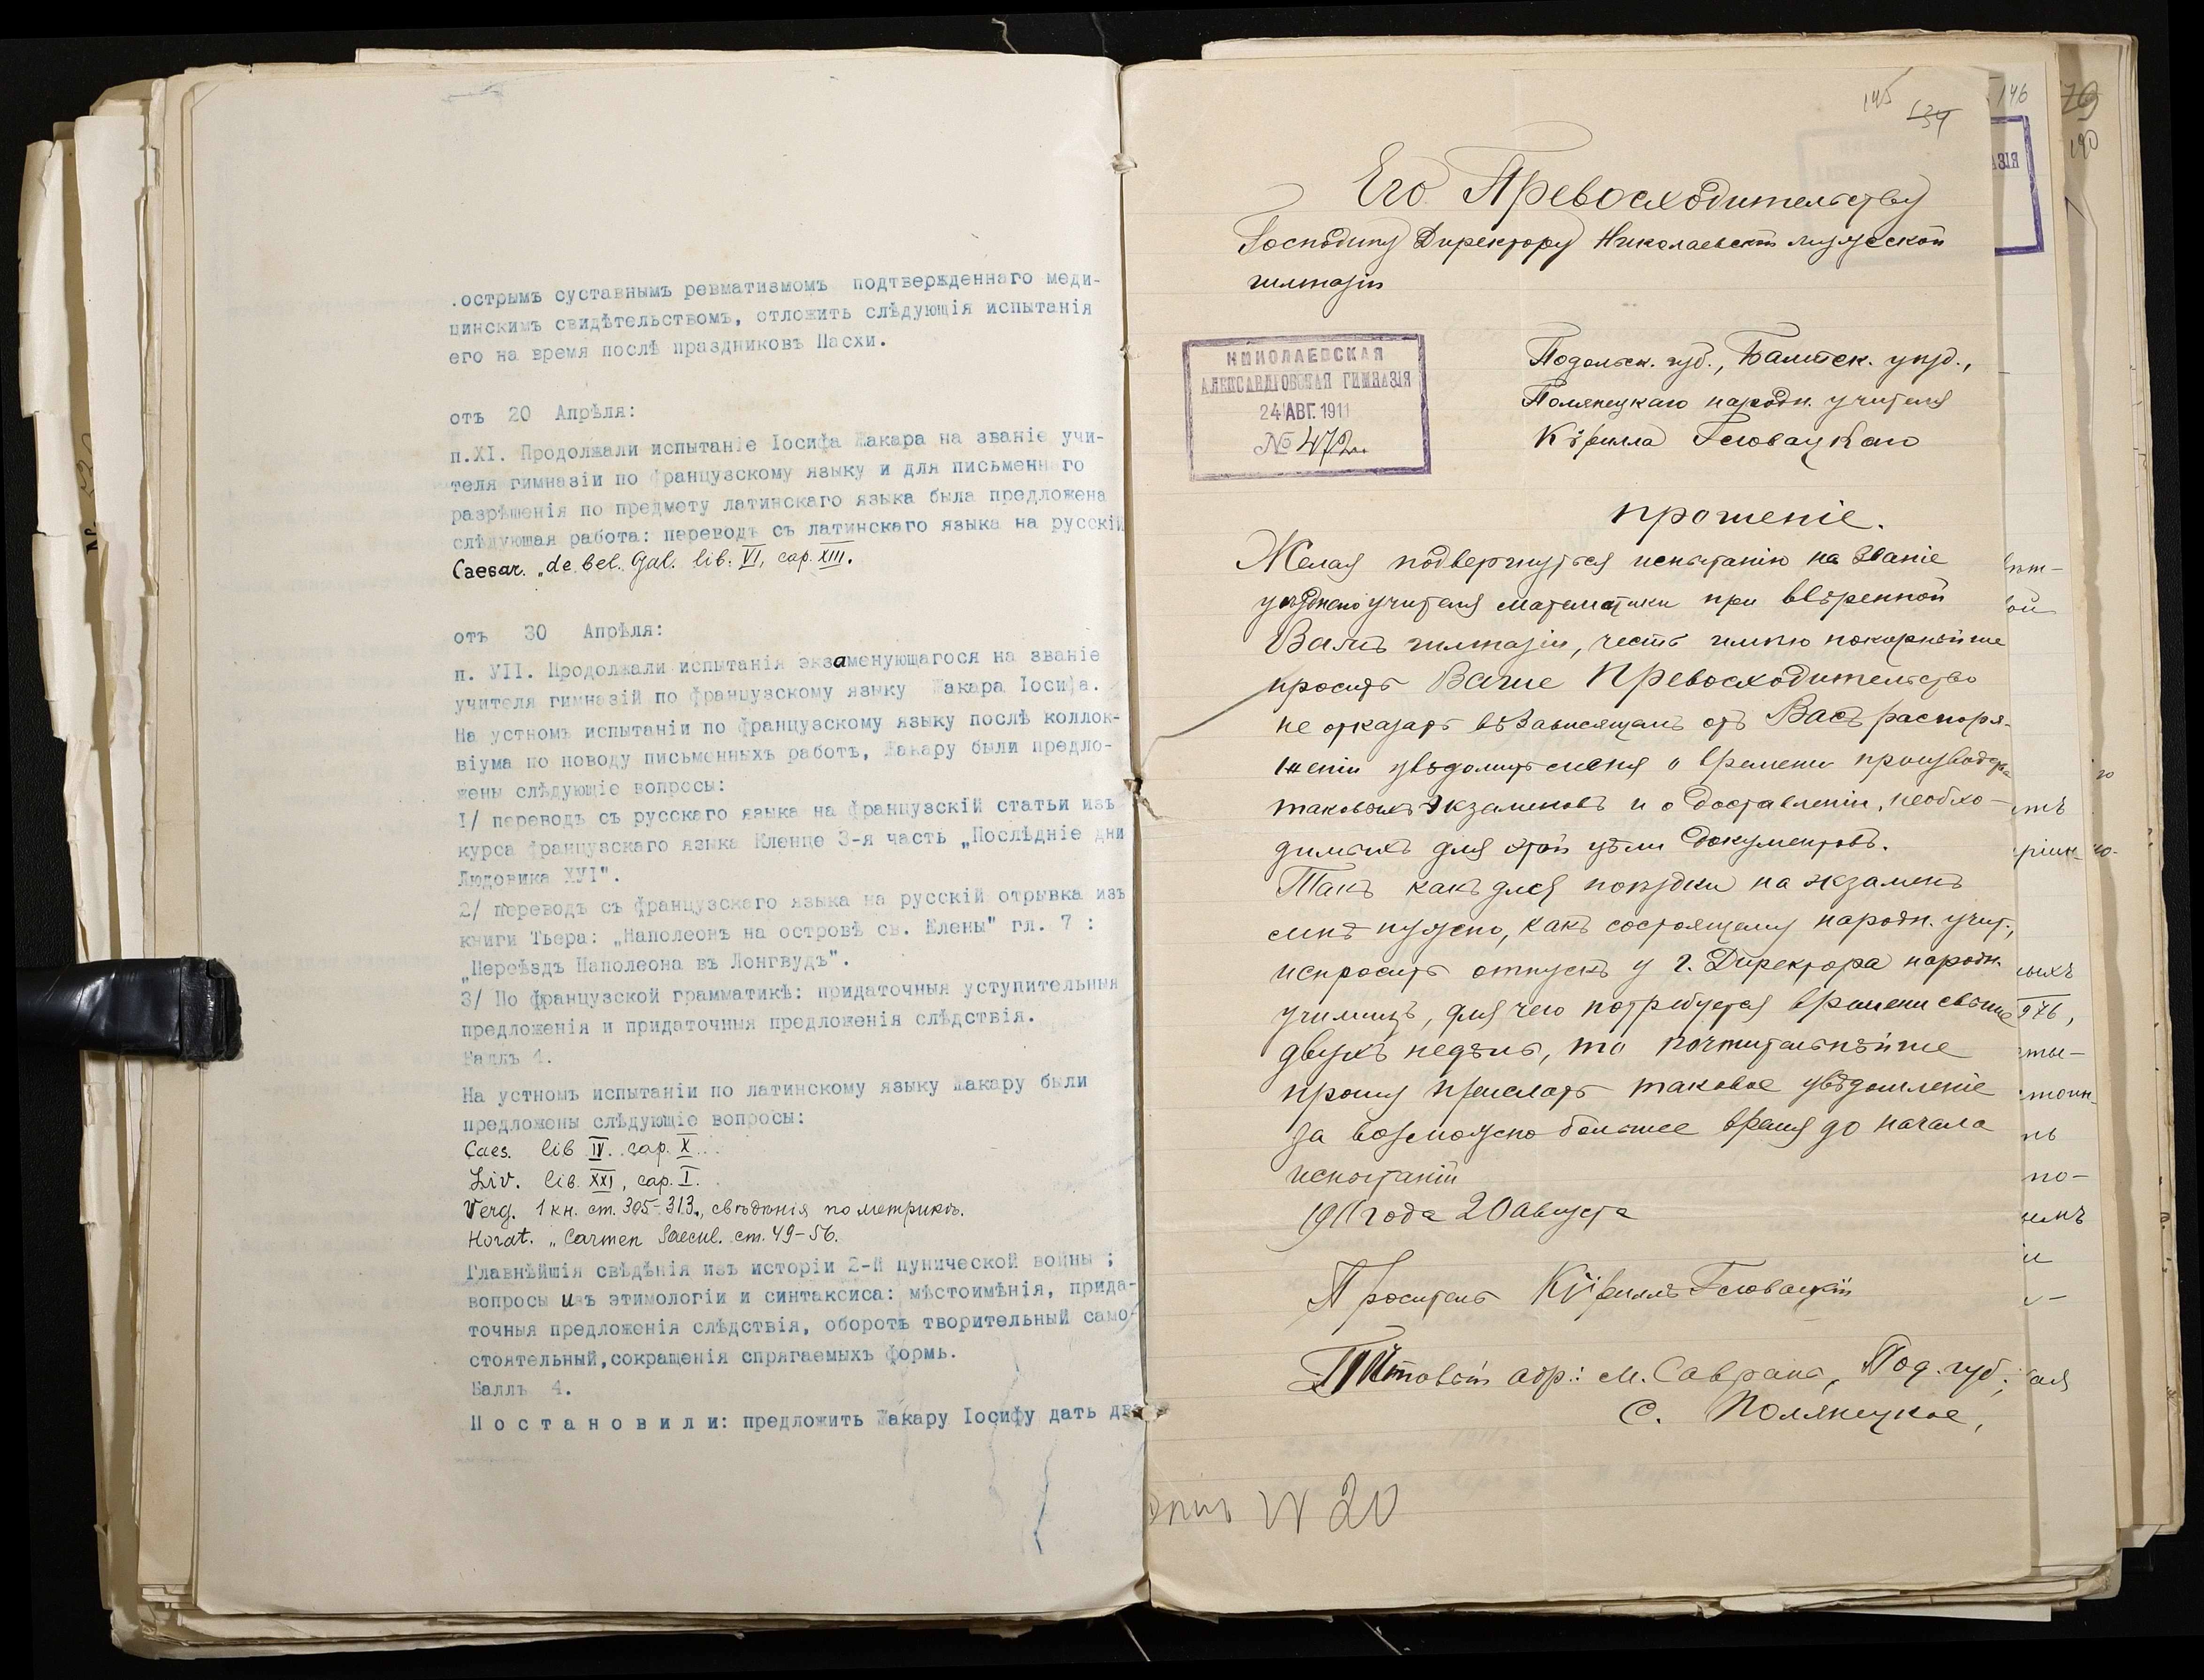 .острымъ суставнымъ ревматизмомъ подтвержденнаго меди-
цинскимъ свидѣтельствомъ, отложить слѣдующія испытанія
его на время послѣ праздниковъ Пасхи.
отъ 20 Апрѣля:
п.XI. Продолжали испытаніе Іосифа Жакара на званіе учи-
теля гимназіи по французскому языку и для письменнаго
разрѣшенія по предмету латинскаго языка была предложена
слѣдующая работа: переводъ съ латинскаго языка на русскій
Caesar. „de bel. Gal. lib. VI, cap. XIII.
отъ 30 Апрѣля:
п. УII. Продолжали испытанія экзаменующагося на званіе
учителя гимназій по французскому языку Жакара Іосифа.
На устномъ испытаніи по французскому языку послѣ коллок-
віума по поводу письменныхъ работъ, Жакару были предло-
жены слѣдующіе вопросы:
I/ переводъ съ русскаго языка на французскій статьи изъ
курса французскаго языка Кленце 3-я часть „Послѣдніе дни
Людовика ХУІ".
2/ переводъ съ французскаго языка на русскій отрывка изъ
книги Тьера: „Наполеонъ на островѣ св. Елены" гл. 7 :
„Переѣздъ Наполеона въ Лонгвудъ".
3/ По французской грамматикѣ: придаточныя уступительныя
предложенія и придаточныя предложенія слѣдствія.
Баллъ 4.
На устномъ испытаніи по латинскому языку Жакару были
предложены слѣдующіе вопросы:
Caes. lib IV. cap. X.
Liv. lib. XXI, cap. I.
Verg. 1 кн. ст. 305-313., свѣдѣнія по метрикѣ.
Horat. „Carmen Saecul. ст. 49-56.
Главнѣйшія свѣдѣнія изъ исторіи 2-й пунической войны ;
вопросы изъ этимологіи и синтаксиса: мѣстоимѣнія, прида-
точныя предложенія слѣдствія, оборотъ творительный само-
стоятельный,сокращенія спрягаемыхъ формъ.
Баллъ 4.
П о с т а н о в и л и: предложить Жакару Іосифу дать
145
134
146
190
Его Превосходительству
Господину Директору Николаевской мужеской
гимназіи
НИКОЛАЕВСКАЯ
АЛЕКСАНДРОВСКАЯ ГИМНАЗІЯ
24 АВГ. 1911
№ 472
Подольск. губ., Балтск. уѣзд.,
Полянецкаго народн. учителя
Кѵрилла Гловацкаго
прошеніе.
Желая подвергнуться испытанію на званіе
уѣзднаго учителя математики при ввѣренной
Вамъ гимназіи, честь имѣю покорнѣйше
просить Ваше Превосходительство
не отказать въ зависящемъ отъ Васъ распоря-
женіи увѣдомить меня о времени производства
таковыхъ экзаменовъ и о доставленіи, необхо-
димыхъ для этой цѣли документовъ.
Такъ какъ для поѣздки на экзаменъ
мнѣ нужно, какъ состоящему народн. учит.,
испросить отпускъ у г. Директора народн.
училищъ, для чего потребуется времени свыше
двухъ недѣль, то почтительнѣйше
прошу прислать таковое увѣдомленіе
за возможно большее время до начала
испытаній
1911 года 20 августа
Проситель Кѵриллъ Гловацкій
Почтовый адр.: м. Саврань, Под. губ.,
с. Полянецкое,
N 20